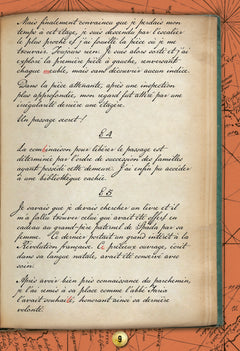 Mais finalement convaincu que je perdais mon
temps à cet étage, je suis descendu par l'escalier
le plus proche et j'ai fouillé la pièce où je me
trouvais. Toujours rien. Je suis alors sorti et j'ai
exploré la première pièce à gauche, renversant
chaque meuble, mais sans découvrir aucun indice.
Dans la pièce attenante, après une inspection
plus approfondie, mon regard fut attiré par une
irrégularité derrière une étagère.
Un passage secret !
La combinaison pour libérer le passage est
déterminée par l'ordre de succession des familles
ayant possédé cette demeure. J'ai enfin pu accéder
à une bibliothèque cachée.
Je savais que je devais chercher un livre et il
m'a fallu trouver celui que avait été offert en
cadeau au grand-père paternel de Spada par sa
femme. Ce dernier portait un grand intérêt à la
Révolution française. Ce précieux ouvrage, écrit
dans sa langue natale, avait été conservé avec
soin.
Après avoir bien pris connaissance du parchemin,
je l'ai remis à sa place comme l'abbé Faria
l'avait souhaité, honorant ainsi sa dernière
volonté.
9